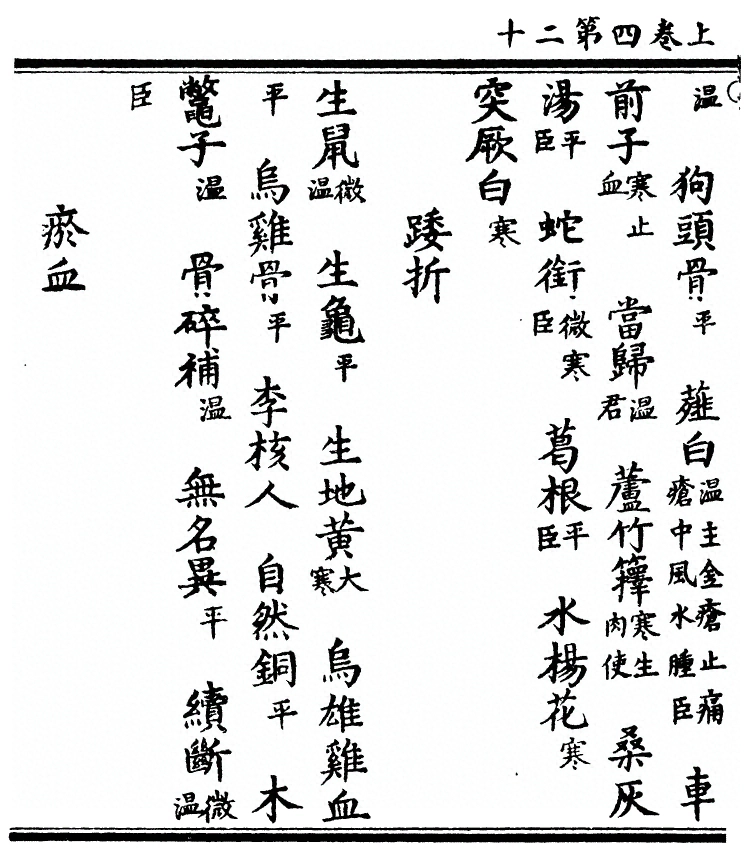 上卷第四二十
温 狗頭骨平 薤白温主金瘡止痛瘡中風水腫臣 車
前子寒止血 當歸温君 蘆竹籜寒生肉使 桑灰
湯平臣 蛇銜微寒臣 葛根平臣 水楊花寒
突厥白寒
踒折
生鼠微温 生龜平 生地黃大寒 烏雄雞血
平 烏雞骨平 李核人 自然銅平 木
鼈子温 骨碎補温 無名異平 續斷微温
臣
瘀血